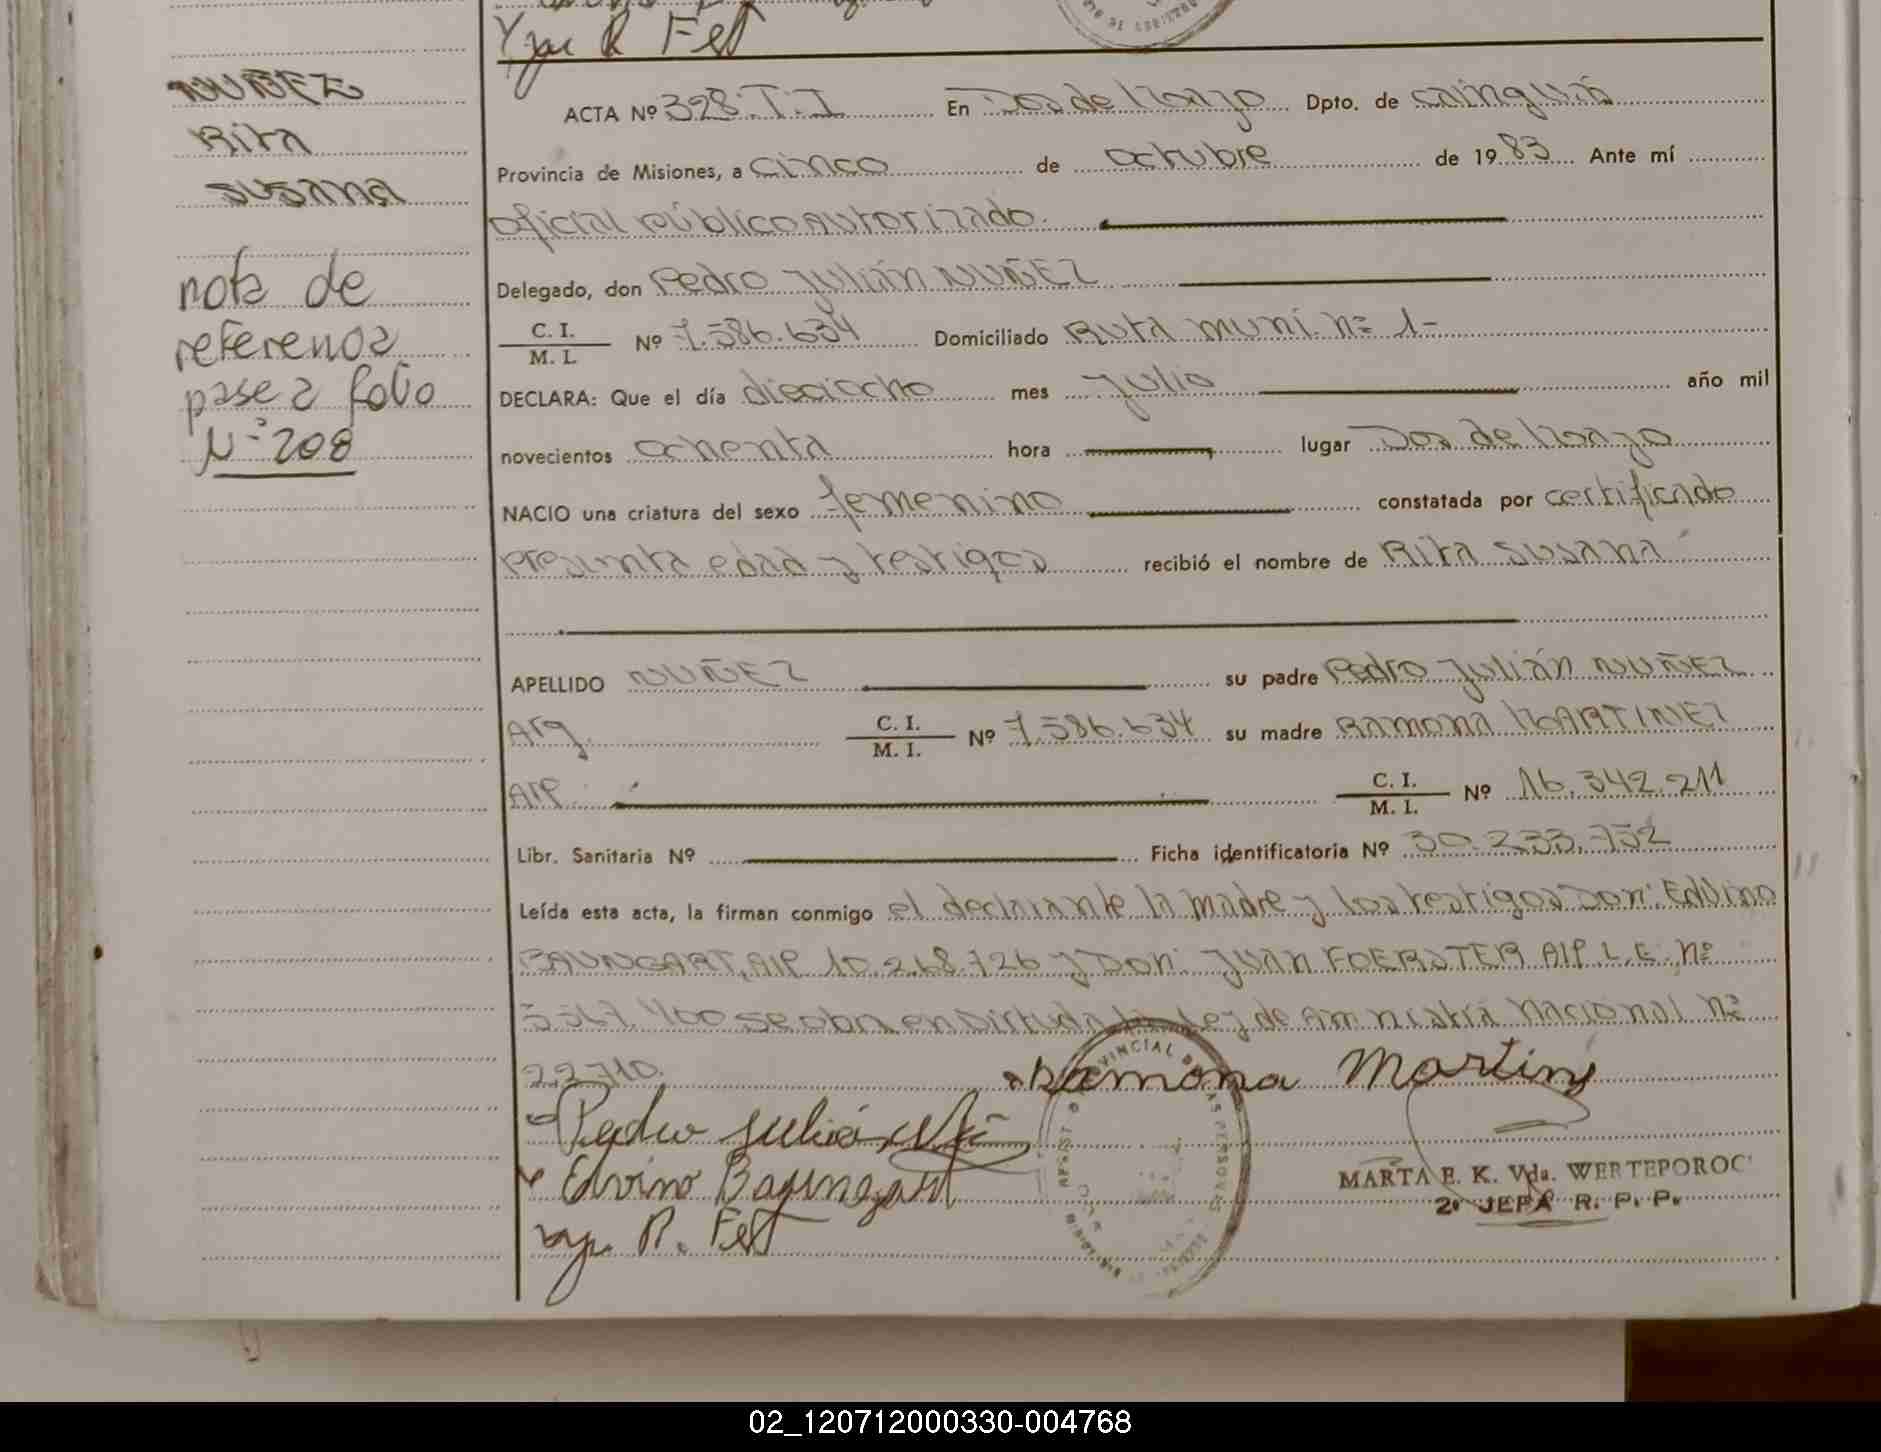 Ygn R Fest
NUÑEZ
Rita
SUSANA
nota de
referencia
pase a folio
N° 208
ACTA Nº 328.T.I En Dos de Mayo Dpto. de Cainguás
Provincia de Misiones, a cinco de octubre de 1983 Ante mí
Oficial público autorizado.
Delegado, don Pedro Julián NUÑEZ
C. I.
M. I. Nº 7.586.634 Domiciliado Ruta muni. nº 1-
DECLARA: Que el día dieciocho mes Julio año mil
novecientos ochenta hora lugar Dos de Mayo
NACIO una criatura del sexo femenino constatada por certificado
presunta edad y testigos recibió el nombre de Rita Susana
APELLIDO NUÑEZ su padre Pedro Julián NUÑEZ
Arg. C. I.
M. I. Nº 7.586.634 su madre Ramona MARTINEZ
AIP C. I.
M. I. Nº 16.342.211
Libr. Sanitaria Nº Ficha identificatoria Nº 30.233.752
Leída esta acta, la firman conmigo el declarante la madre y los testigos Don: Edvino
BAUNGART, AIP 10.268.726 y Don: Juan FOERSTER AIP L.E. nº
se obra en virtud de la Ley de Amnistía Nacional nº
22.710.
Ramona Martins
Pedro Julián
Edvino Baungart
R. Fest
MARTA E. K. Vda. WERTEPOROC
2º JEFA R. P. P.
02_120712000330-004768